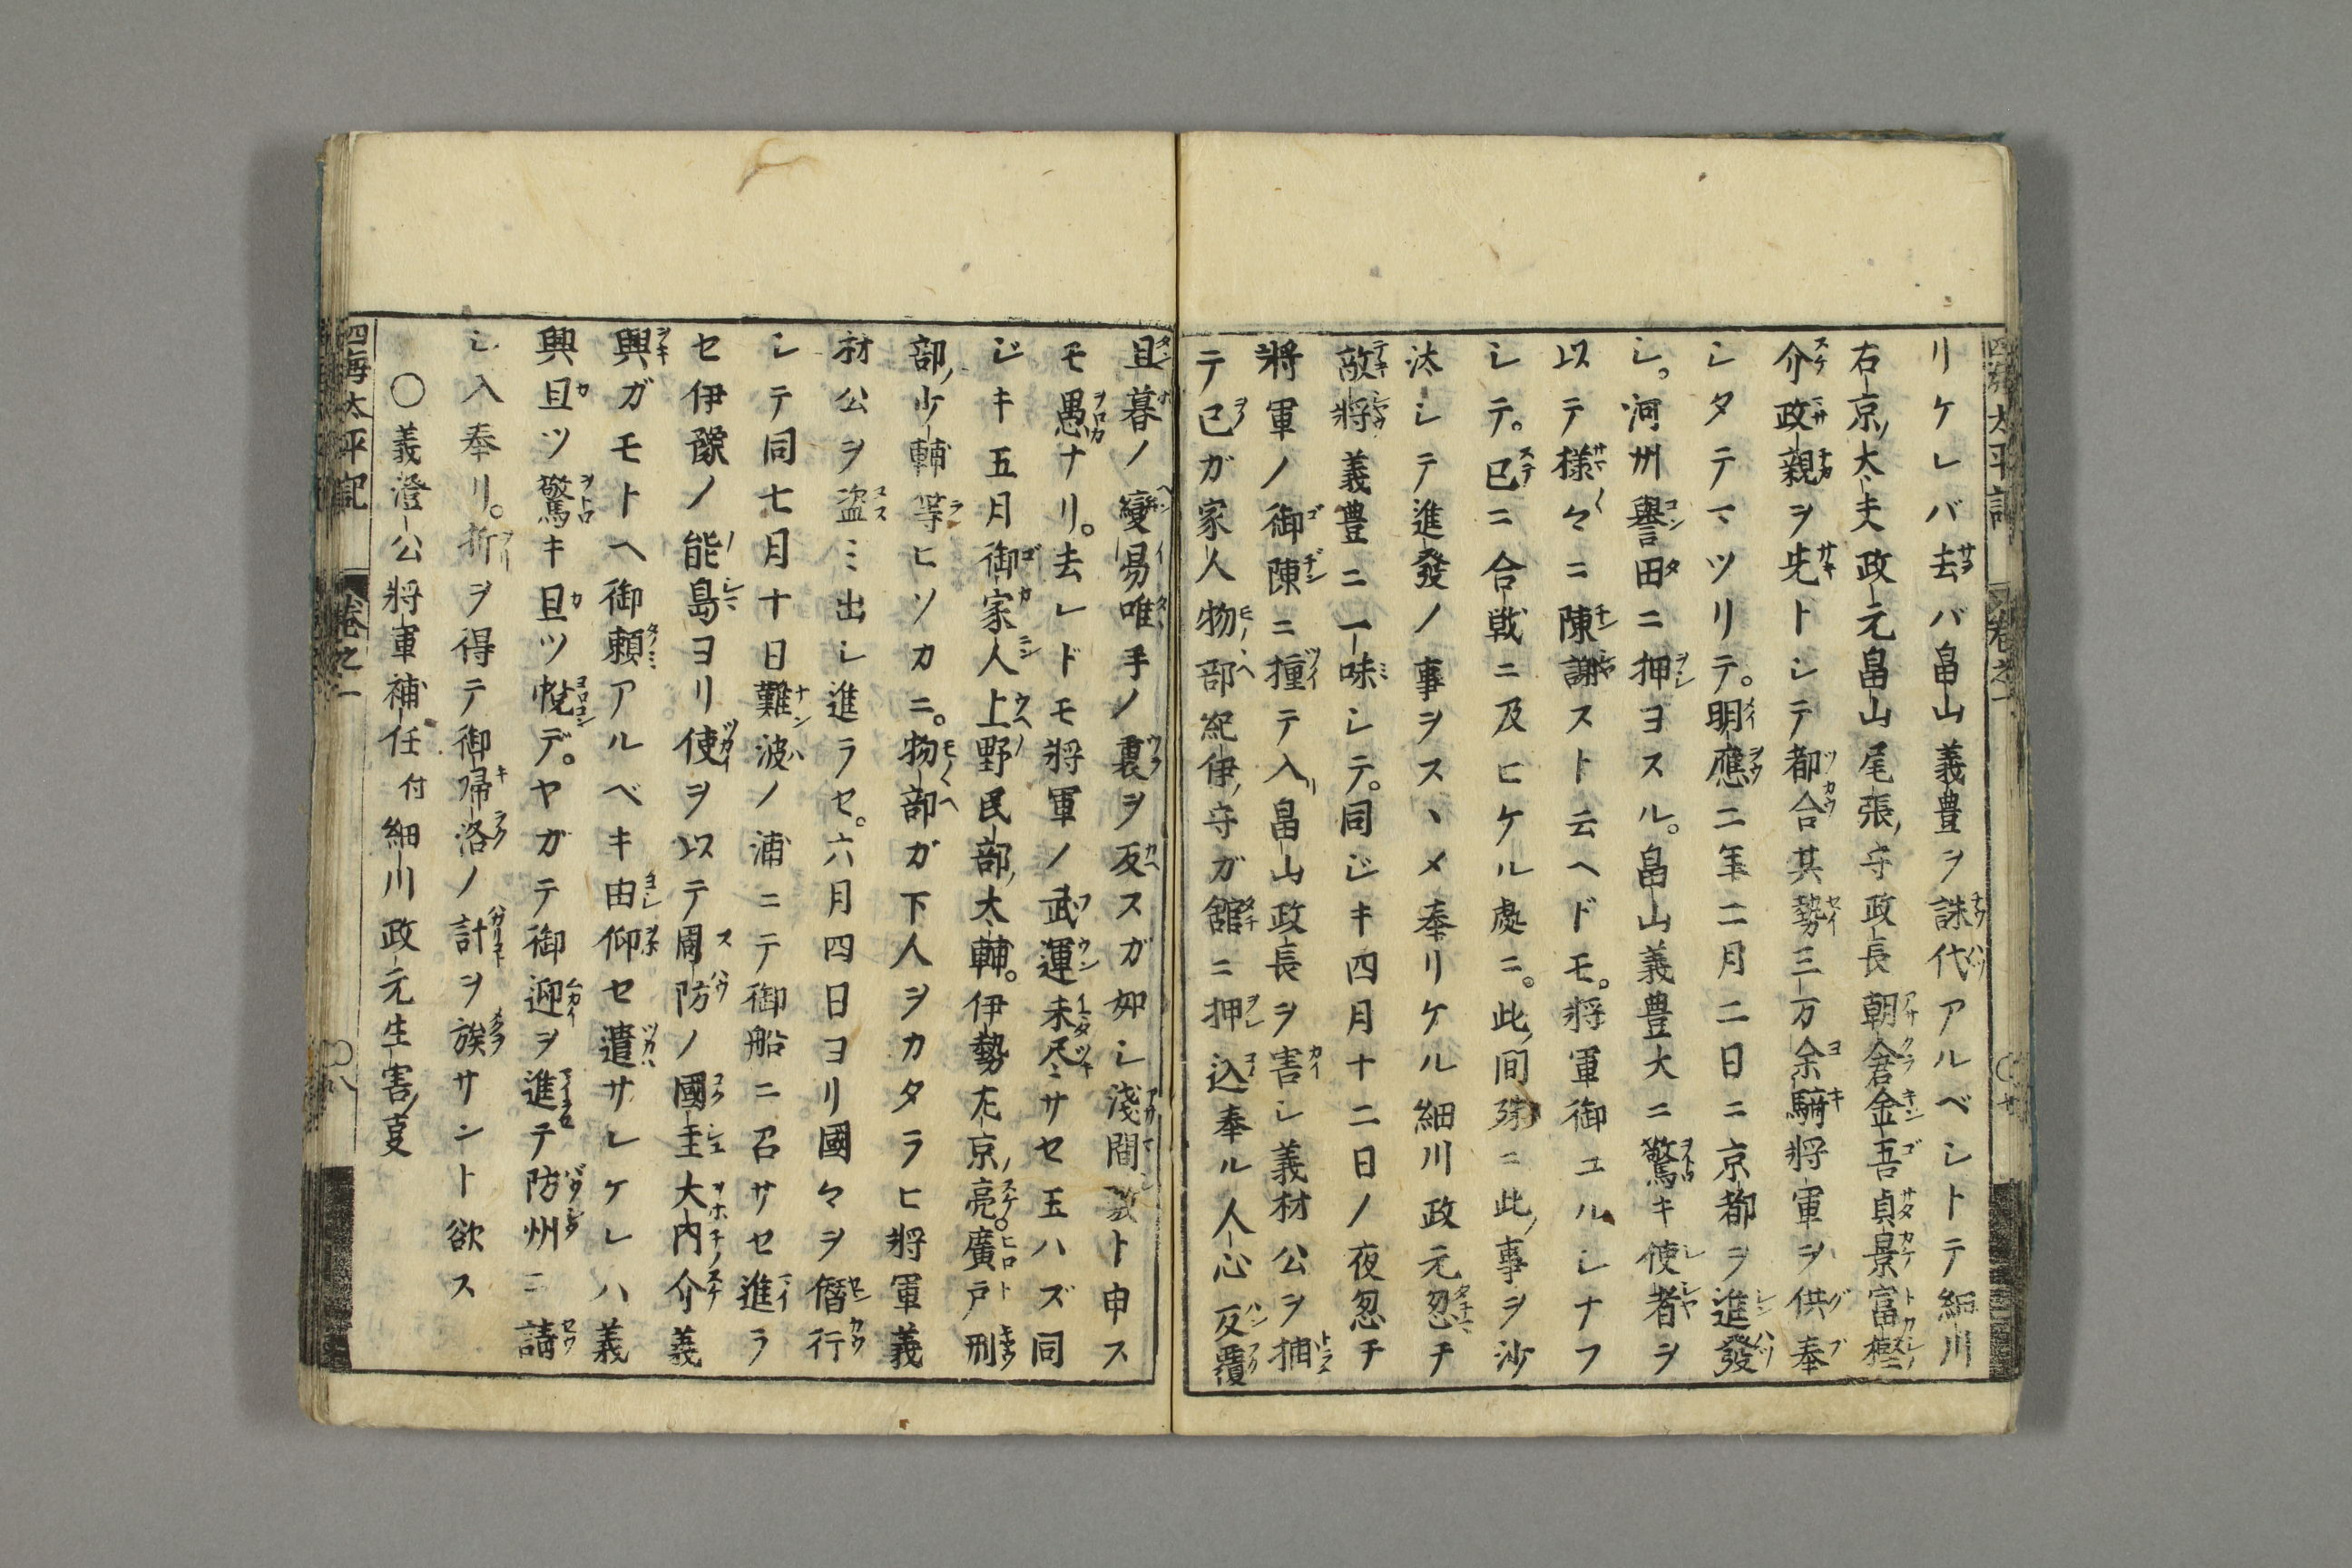 リケレバ去バ畠山義豊ヲ誅伐アルベシトテ細川
右京大夫政元畠山尾張守政長朝倉金吾貞景富樫
介政親ヲ先トシテ都合其勢三万余騎將軍ヲ供奉
シタテマツリテ。明應二年二月二日ニ京都ヲ進發
シ。河州譽田ニ押ヨスル。畠山義豊大ニ驚キ使者ヲ
以テ様々ニ陳謝スト云ヘドモ。將軍御ユルシナフ
シテ。已ニ合戦ニ及ヒケル處ニ。此間殊ニ此事ヲ沙
汰シテ進發ノ事ヲスヽメ奉リケル細川政元忽チ
敵將義豊ニ一味シテ。同ジキ四月十二日ノ夜忽チ
將軍ノ御陳ニ撞テ入畠山政長ヲ害シ義材公ヲ捕
テ己ガ家人物部紀伊守ガ舘ニ押込奉ル人心反覆
旦暮ノ變易唯手ノ裏ヲ反スガ如シ淺間敷ト申ス
モ愚ナリ。去レドモ將軍ノ武運未尽サセ玉ハズ同
ジキ五月御家人上野民部太輔。伊勢左京亮。廣戸刑
部少輔等ヒソカニ。物部ガ下人ヲカタラヒ將軍義
材公ヲ盗ミ出シ進ラセ。六月四日ヨリ國々ヲ僭行
シテ同七月十日難波ノ浦ニテ御船ニ召サセ進ラ
セ伊豫ノ能島ヨリ使ヲ以テ周防ノ國主大内介義
興ガモトヘ御頼アルベキ由仰セ遣サレケレハ義
興且ツ驚キ且ツ悦デ。ヤガテ御迎ヲ進テ防州ニ請
シ入奉リ。折ヲ得テ御帰洛ノ計ヲ族サント欲ス
○義澄公將軍補任 付 細川政元生害夏
四海太平記 巻之一 ○八